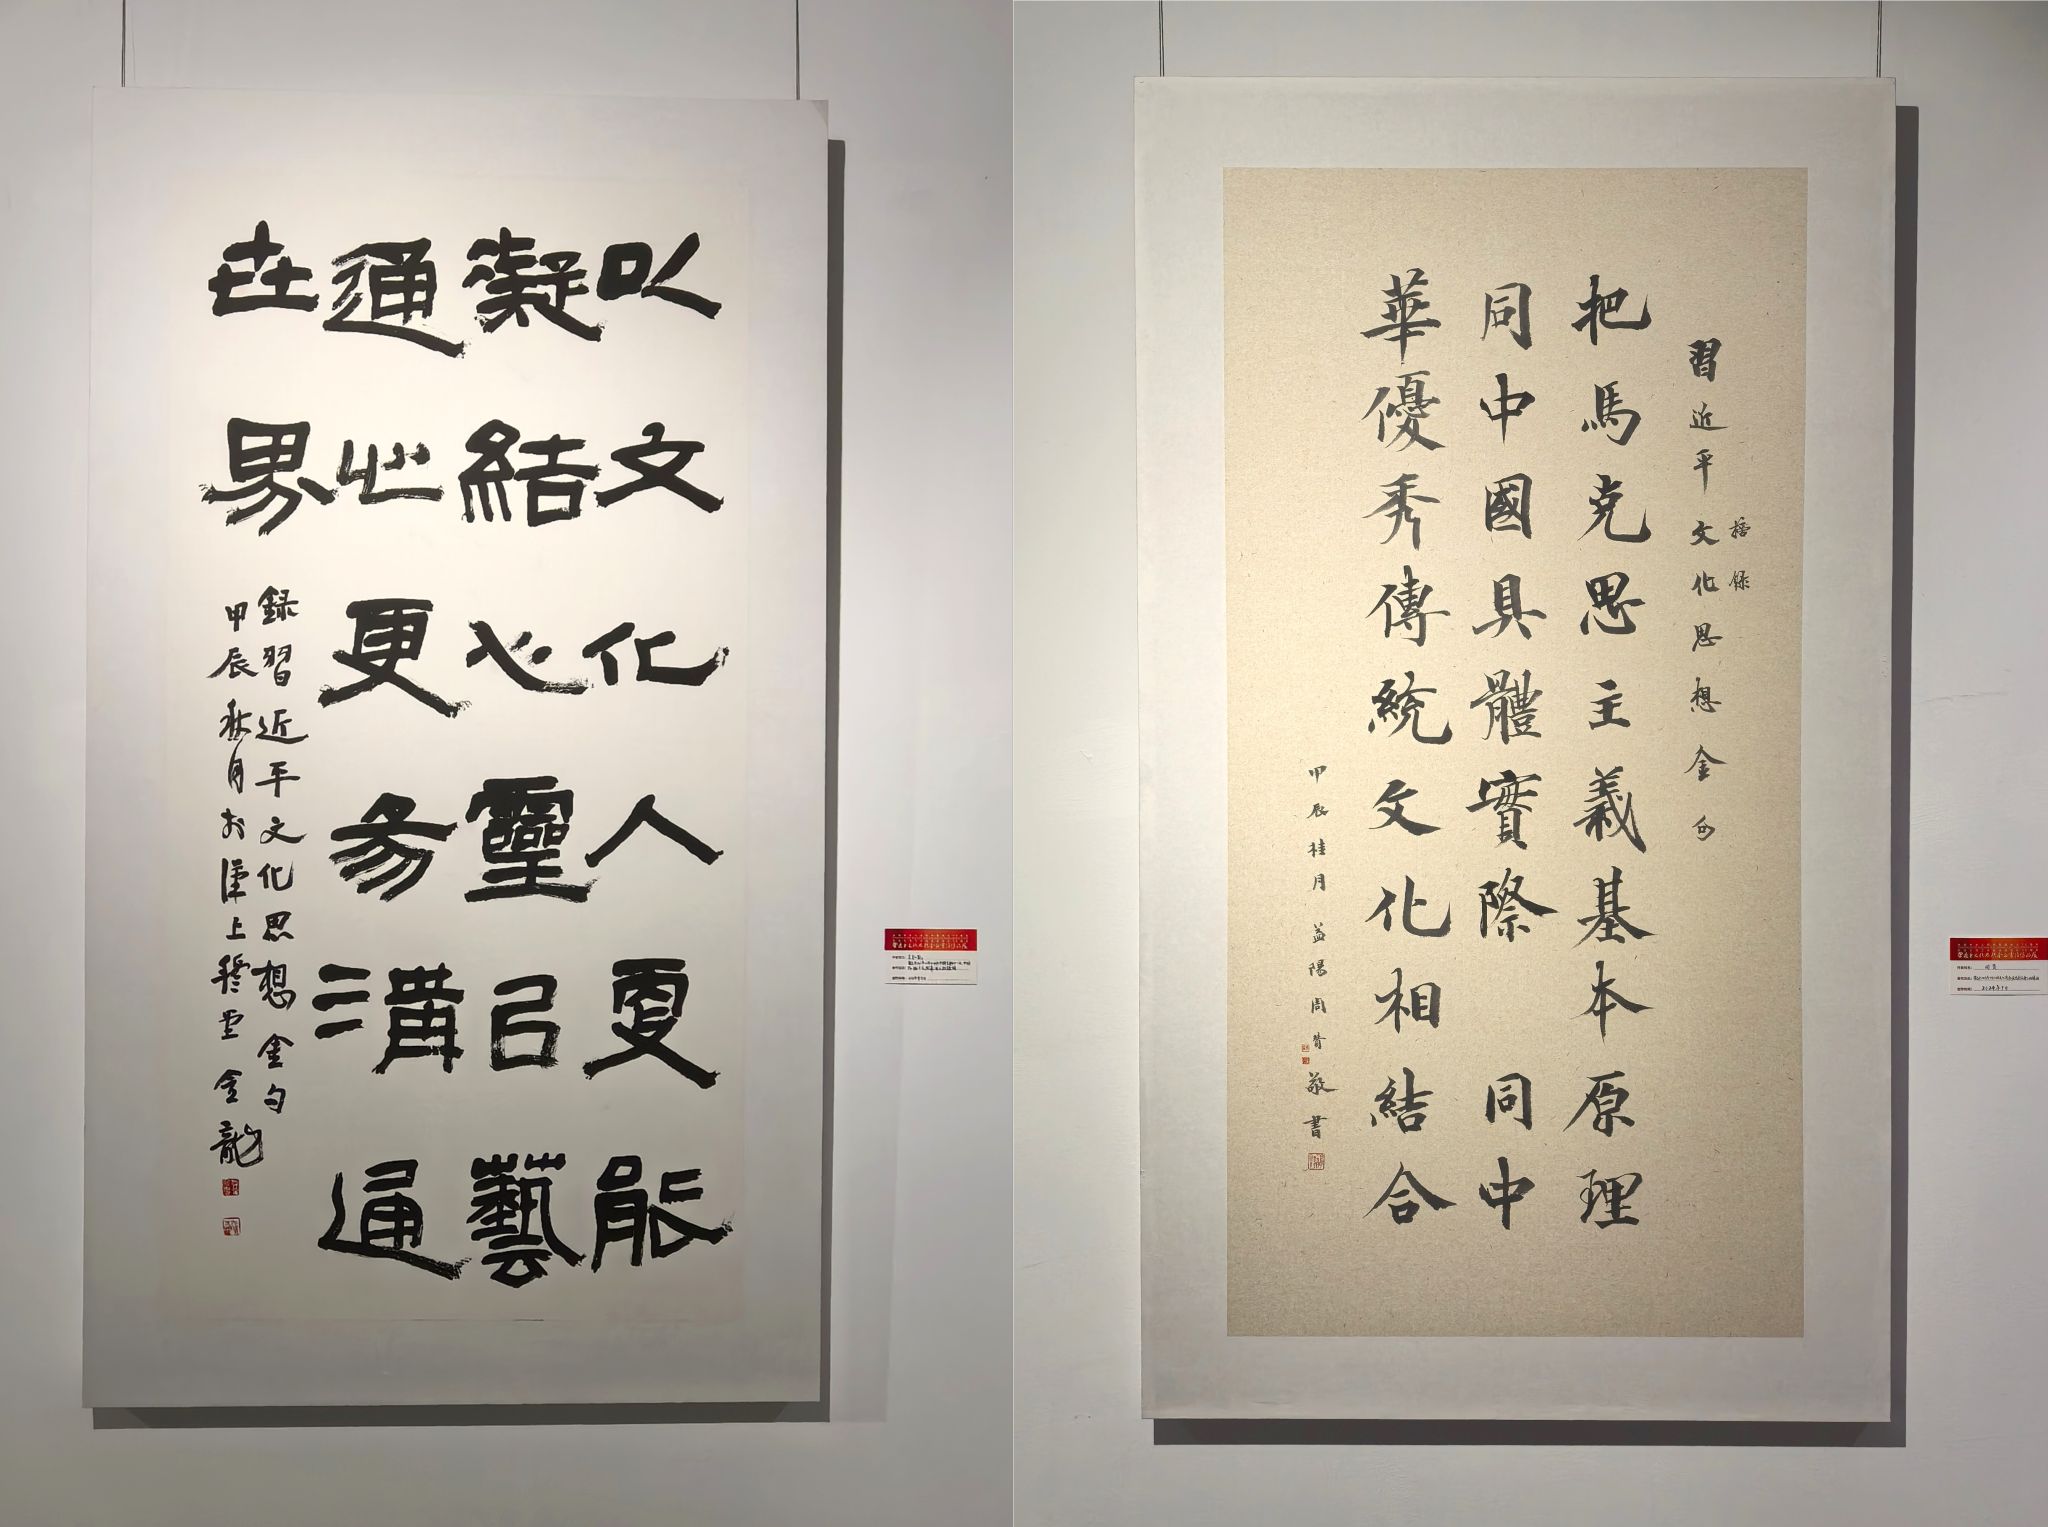 以文化人更能
凝結心靈以藝
通心更易溝通
世界
録習近平文化思想金句
甲辰秋月於漢上穆堂金龍
摘録
習近平文化思想金句
把馬克思主義基本原理
同中國具體實際同中
華優秀傳統文化相結合
甲辰桂月益陽周敬書